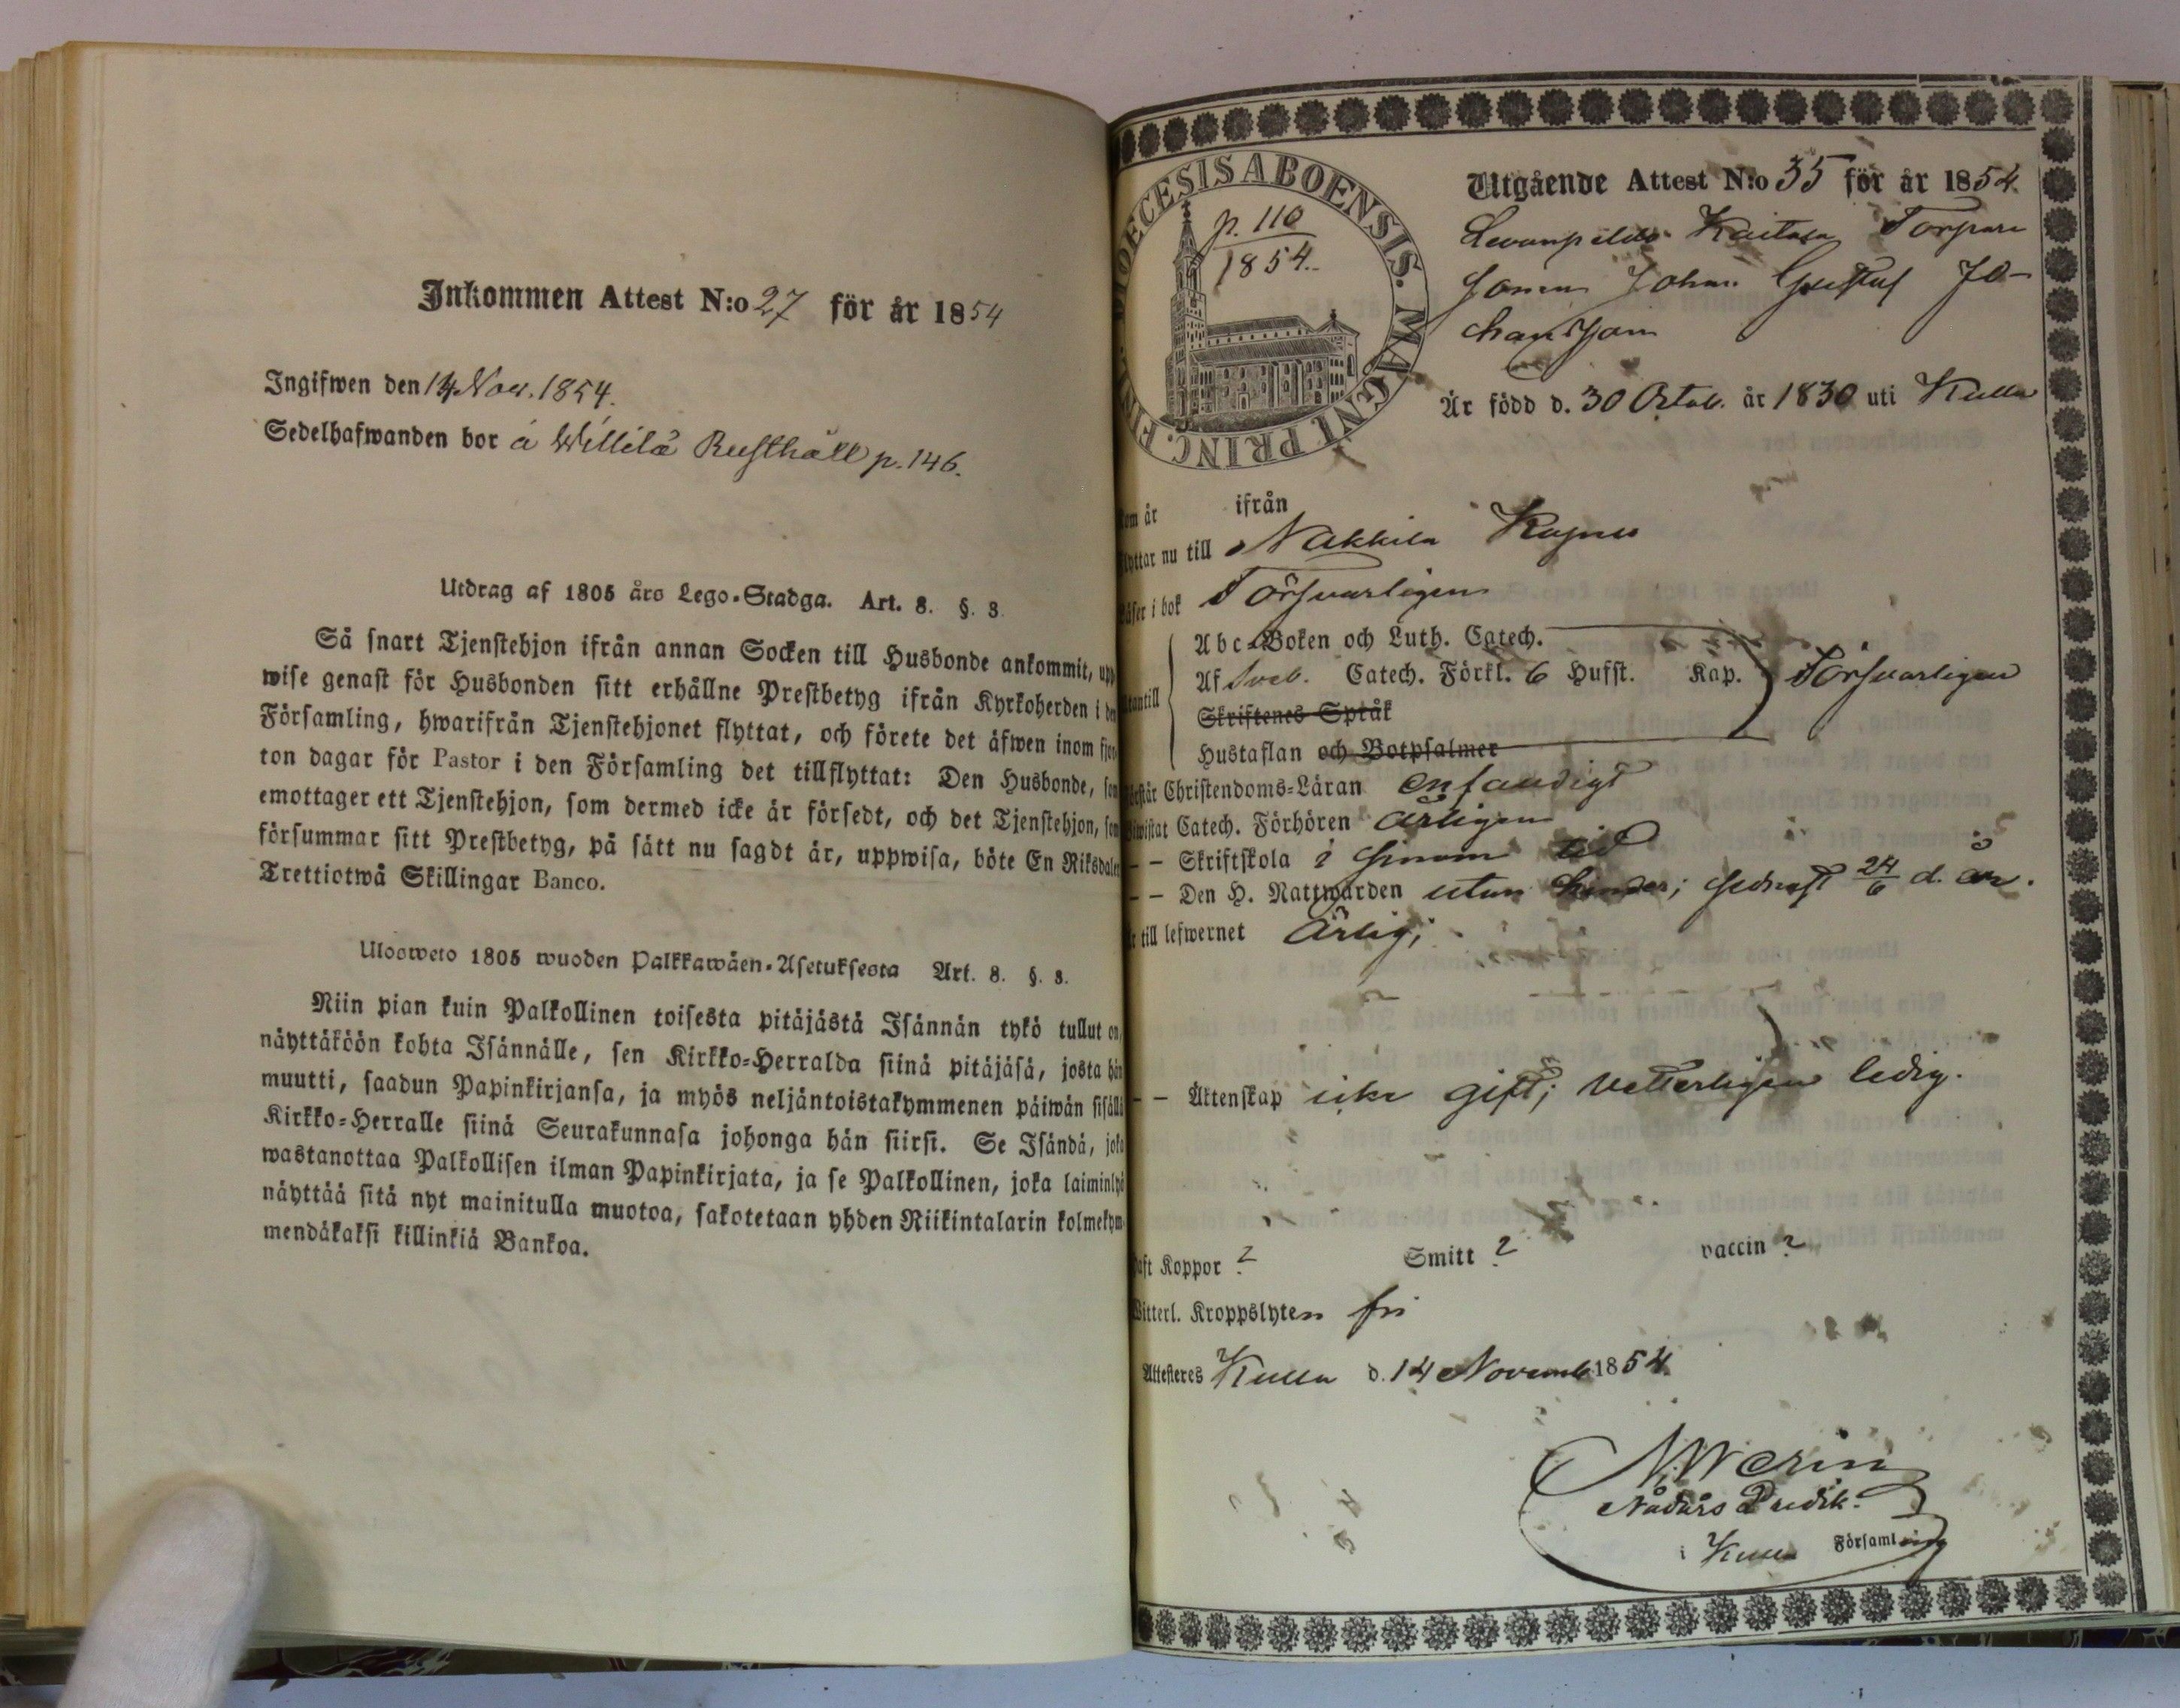 Inkommen Attest N:o 27 för år 1854
Ingifwen den 14 Nov. 1854.
Sedelhafwanden bor å Willilä Rusthåll p. 146.
Utdrag af 1805 års Lego-Stadga. Art. 8. §. 3.
Så snart Tjenstehjon ifrån annan Socken till Husbonde ankommit, upp-
wise genast för Husbonden sitt erhållne Prestbetyg ifrån Kyrkoherden i den
Församling, hwarifrån Tjenstehjonet flyttat, och förete det äfwen inom fjor-
ton dagar för Pastor i den Församling det tillflyttat: Den Husbonde, som
emottager ett Tjenstehjon, som dermed icke är försedt, och det Tjenstehjon, som
försummar sitt Prestbetyg, på sätt nu sagdt är, uppwisa, böte En Riksdaler
Trettiotwå Skillingar Banco.
Ulosweto 1805 wuoden Palkkawäen-Asetuksesta Art. 8. §. 3.
Niin pian kuin Palkollinen toisesta pitäjästä Isännän tykö tullut on,
näyttäköön kohta Isännälle, sen Kirkko-Herralda siinä pitäjäsä, josta hän
muutti, saadun Papinkirjansa, ja myös neljäntoistakymmenen päiwän sisällä
Kirkko-Herralle siinä Seurakunnasa johonga hän siirsi. Se Isändä, joka
wastanottaa Palkollisen ilman Papinkirjata, ja se Palkollinen, joka laiminlyö
näyttää sitä nyt mainitulla muotoa, sakotetaan yhden Riikintalarin kolmekym-
mendäkaksi killinkiä Bankoa.
DIOECESIS ABOENSIS. MAGNI PRINC. FINL.
p. 110
1854.
Utgående Attest N:o 35 för år 1854.
Kaitara Torpare
sonen Johan Gustaf Jo-
hansson
Är född d. 30 Octob. år 1830 uti Kulla
Kom år ifrån
Flyttar nu till Nakkila Kapell
Läser i bok Försvarligen
Utantill
Abc-Boken och Luth. Catech.
Af Sveb. Catech. Förkl. 6 Hufst. Kap. Försvarligen
Skriftenes Språk
Hustaflan och Botpsalmer
Förstår Christendoms-Läran enfaldigt
Biwistat Catech. Förhören årligen
- - Skriftskola i sinom tid
- - Den H. Nattwarden utan hinder; sednast 24/6 d. år.
Är till lefwernet Ärlig;
- - Äktenskap icke gift; vetterligen ledig.
Haft Koppor ? Smitt ? vaccin ?
Witterl. Kroppslyten fri
Attesteres Kulla d. 14 Novemb 1854.
Nådårs Predik.
i Kulla Församling